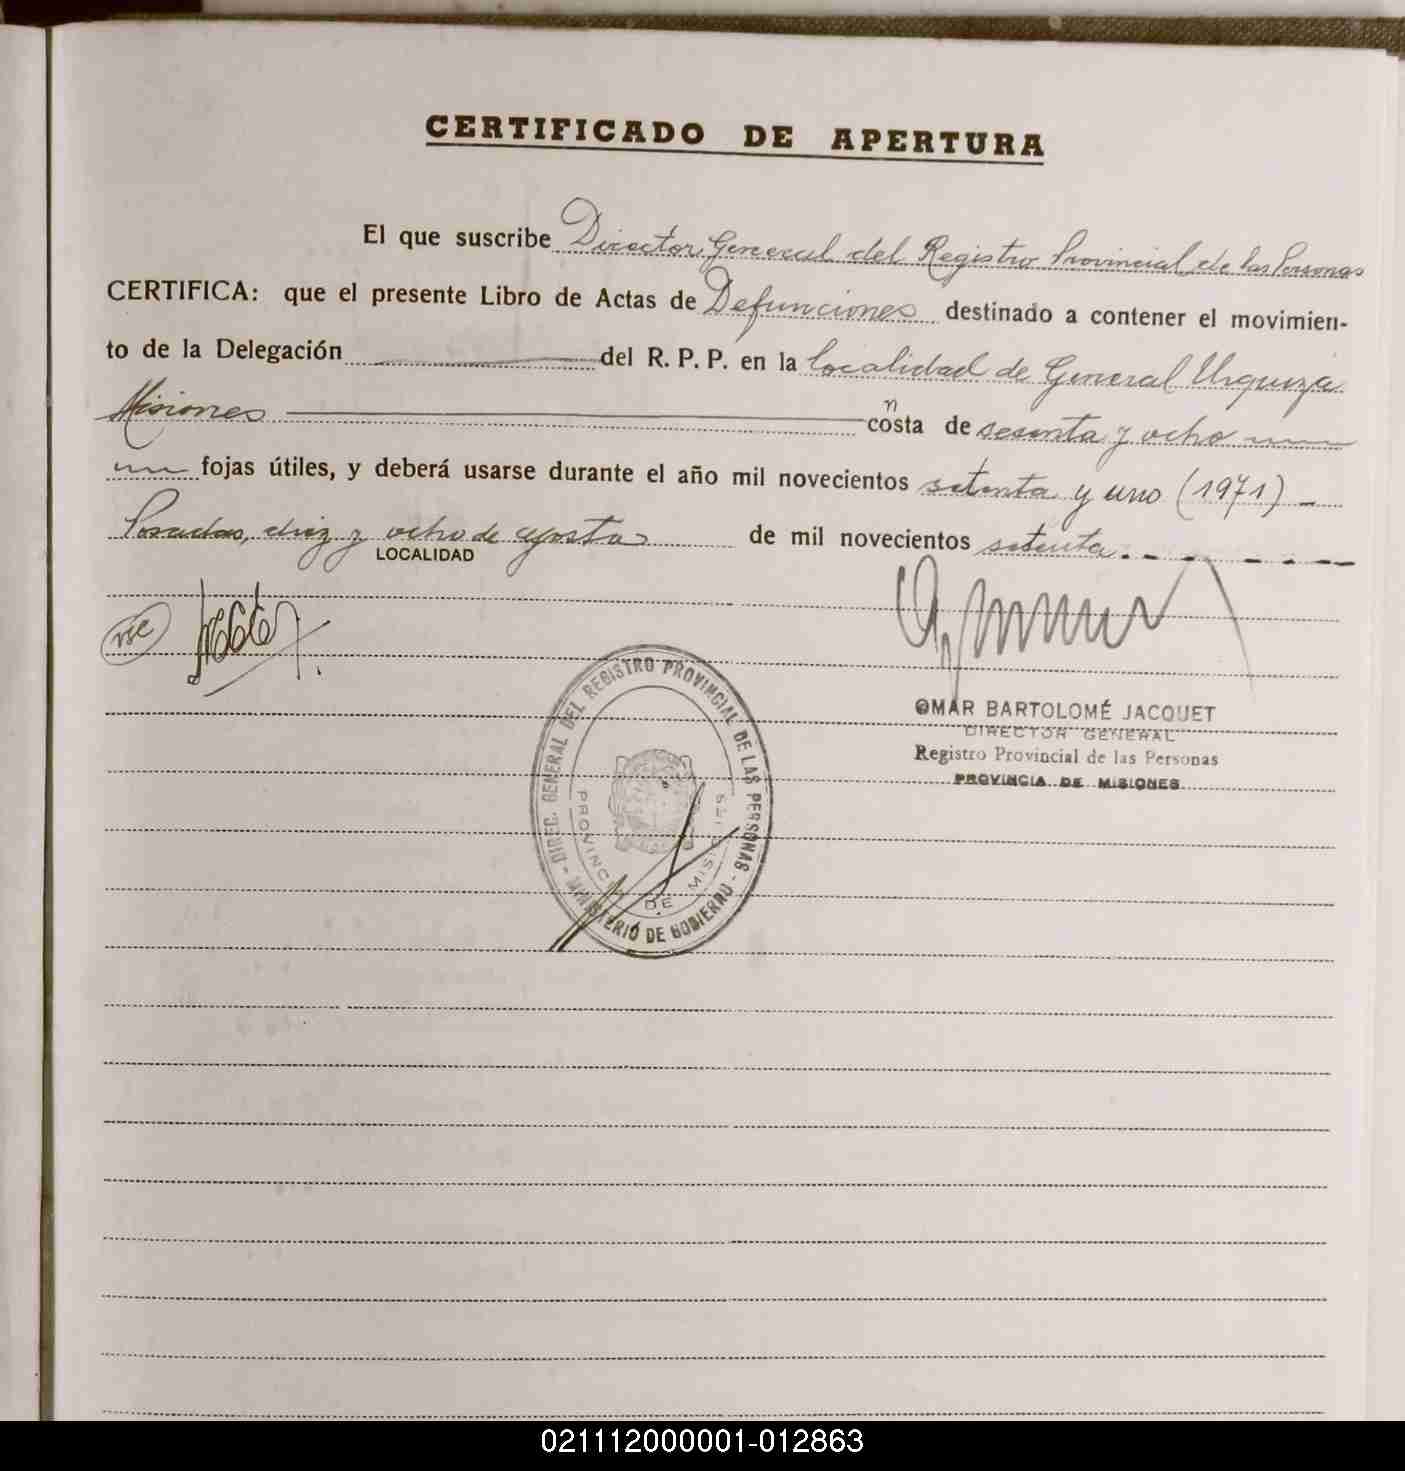 CERTIFICADO DE APERTURA
El que suscribe Director General del Registro Provincial de las Personas
CERTIFICA: que el presente Libro de Actas de Defunciones destinado a contener el movimien-
to de la Delegación del R. P. P. en la localidad de General Urquiza
Misiones consta de sesenta y ocho
fojas útiles, y deberá usarse durante el año mil novecientos setenta y uno (1971)
Posadas, diez y ocho de agosto de mil novecientos setenta.
LOCALIDAD
OMAR BARTOLOMÉ JACQUET
DIRECTOR GENERAL
Registro Provincial de las Personas
PROVINCIA DE MISIONES
DIREC. GENERAL DEL REGISTRO PROVINCIAL DE LAS PERSONAS - MINISTERIO DE GOBIERNO -
PROVINCIA DE MISIONES
021112000001-012863